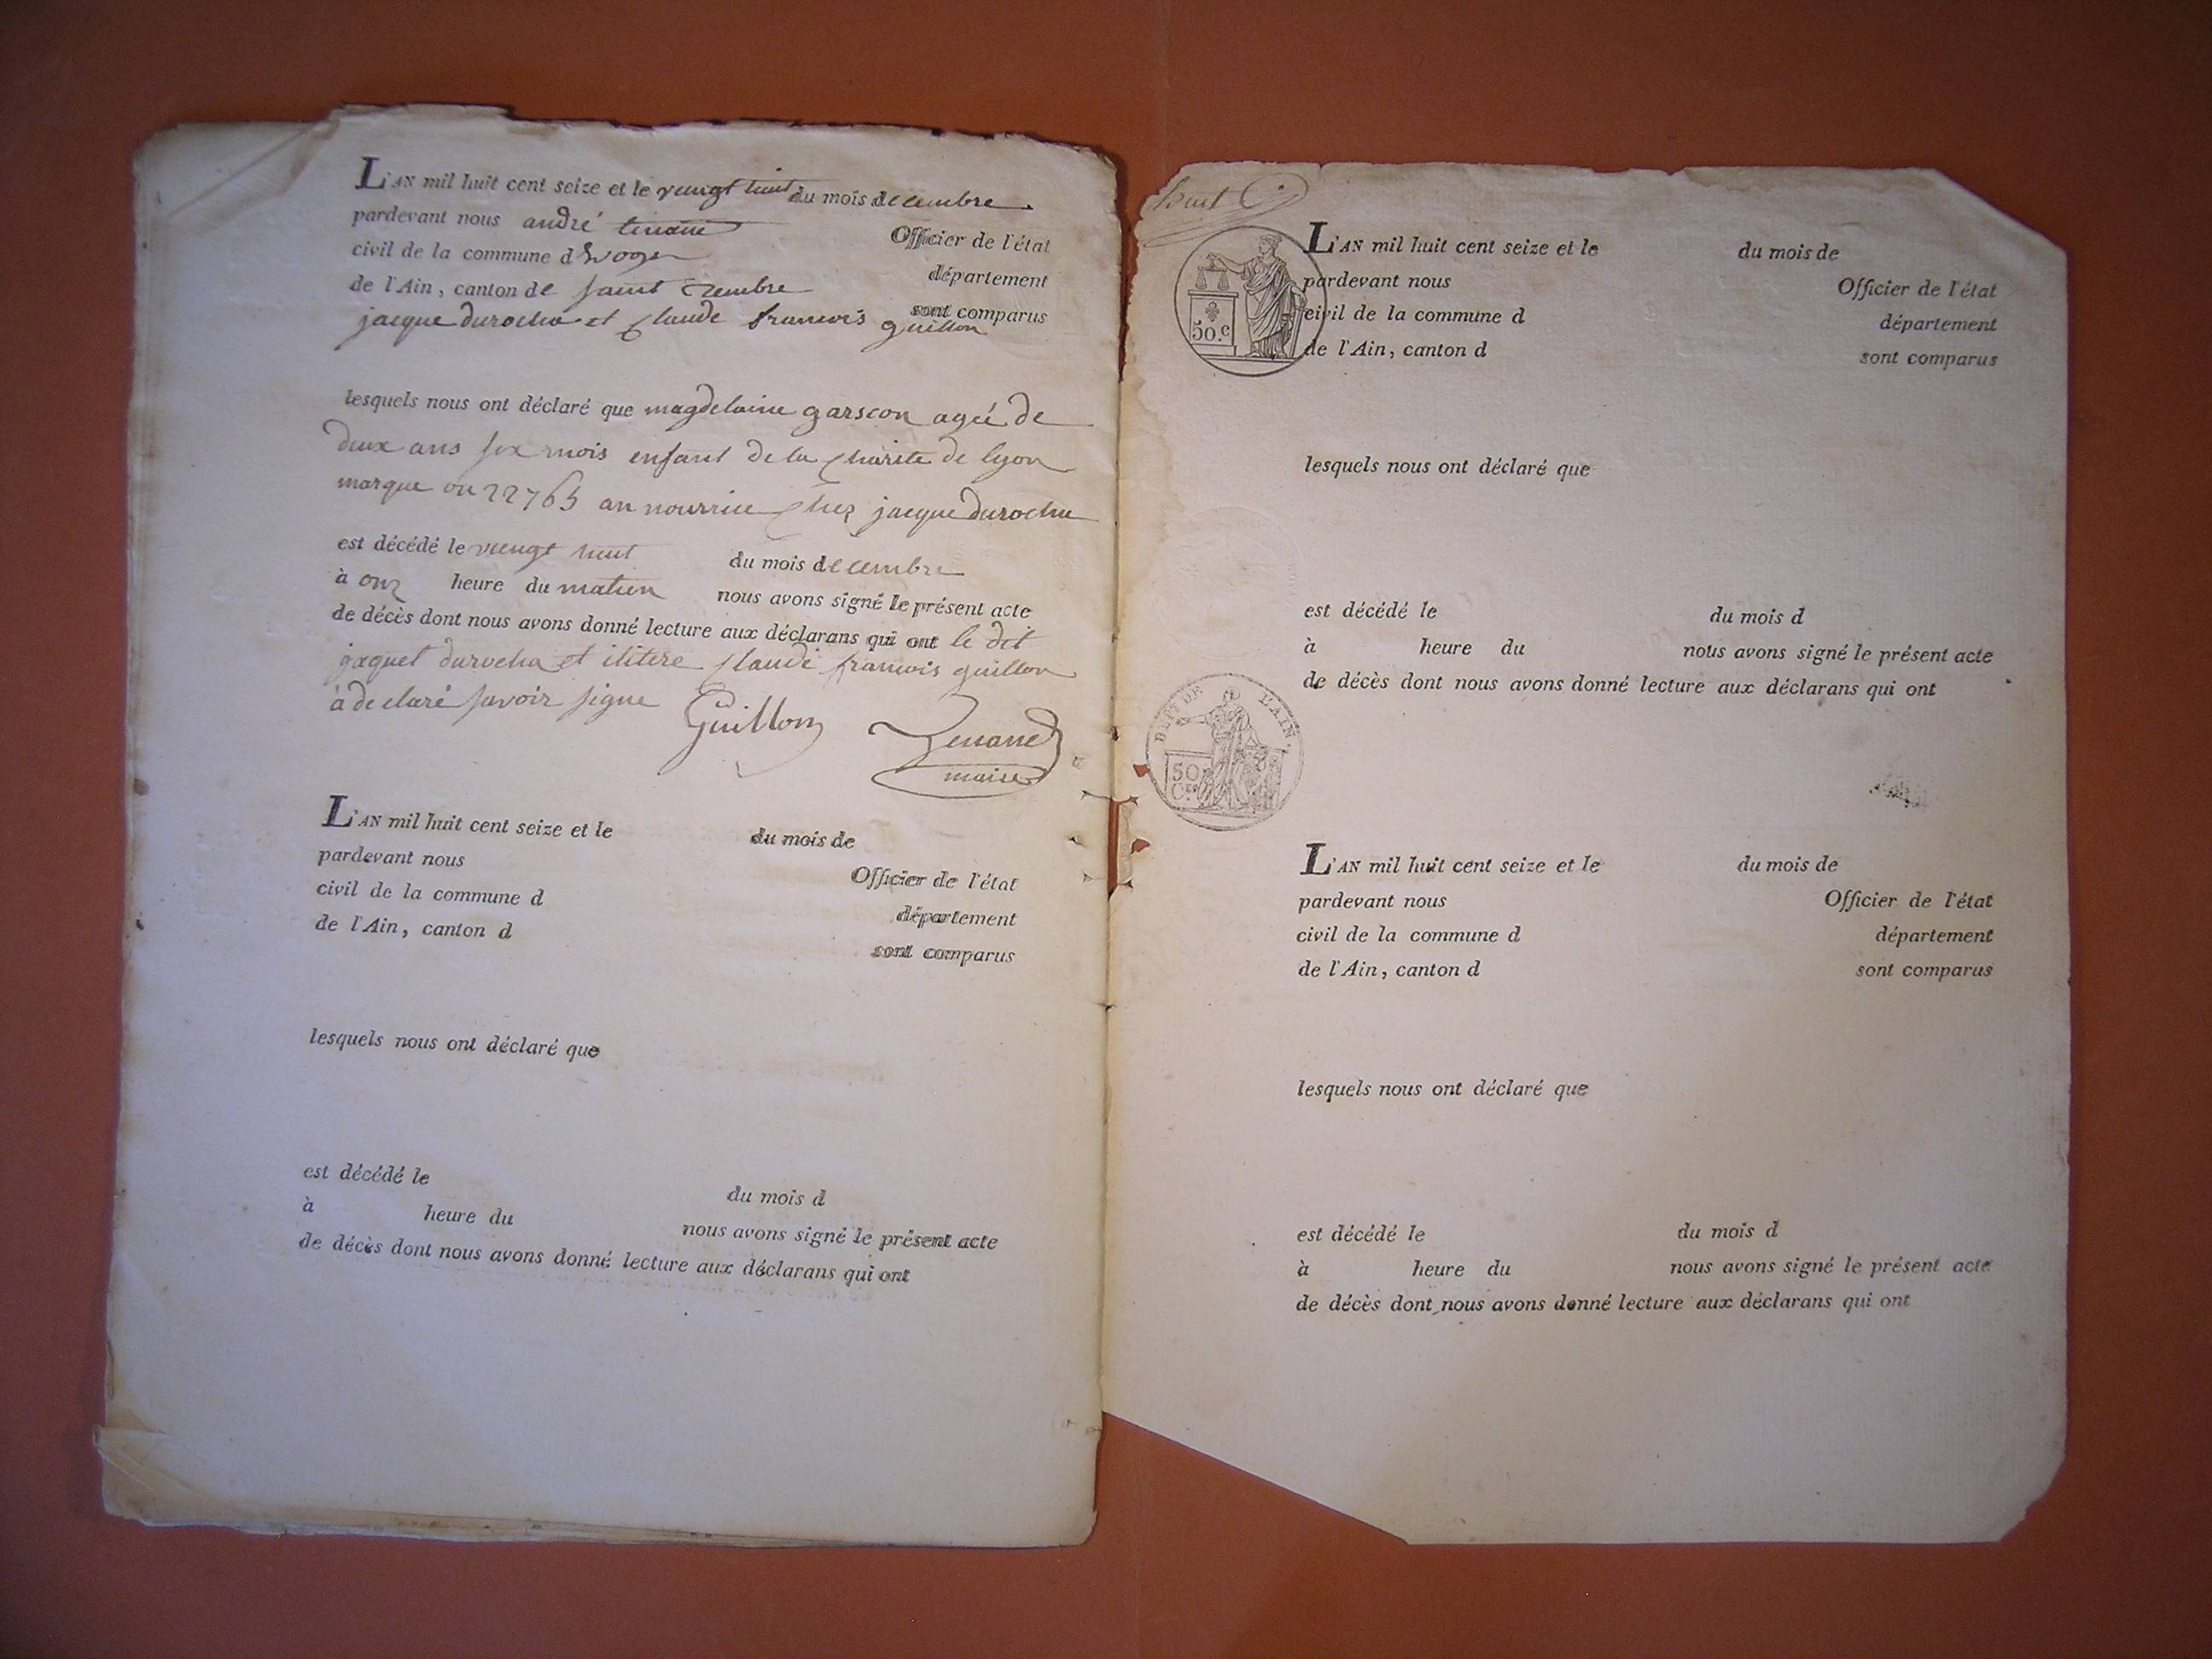 L'AN mil huit cent seize et le veingt huit du mois decembre
pardevant nous andré Officier de l'état
civil de la commune d département
de l'Ain, canton de saint rembre sont comparus
jacque durocha et Claude francois guillon
lesquels nous ont déclaré que magdelaine garscon ageé de
deux ans six mois enfant de la Charite de lyon
marque on 22765 an nourrice Chez jacque durocha
est décédé le veingt huit du mois decembre
à onz heure du matien nous avons signé le présent acte
de décès dont nous avons donné lecture aux déclarans qui ont le dit
jaquet durocha et ilitere Claude francois guillon
à declaré savoir signe
Guillon
maire
L'AN mil huit cent seize et le du mois de
pardevant nous Officier de l'état
civil de la commune d département
de l'Ain, canton d sont comparus
lesquels nous ont déclaré que
est décédé le du mois d
à heure du nous avons signé le présent acte
de décès dont nous avons donné lecture aux déclarans qui ont
huit
50.c
L'AN mil huit cent seize et le du mois de
pardevant nous Officier de l'état
civil de la commune d département
de l'Ain, canton d sont comparus
lesquels nous ont déclaré que
est décédé le du mois d
à heure du nous avons signé le présent acte
de décès dont nous avons donné lecture aux déclarans qui ont
DEPT DE L'AIN.
50
Ces
L'AN mil huit cent seize et le du mois de
pardevant nous Officier de l'état
civil de la commune d département
de l'Ain, canton d sont comparus
lesquels nous ont déclaré que
est décédé le du mois d
à heure du nous avons signé le présent acte
de décès dont nous avons donné lecture aux déclarans qui ont